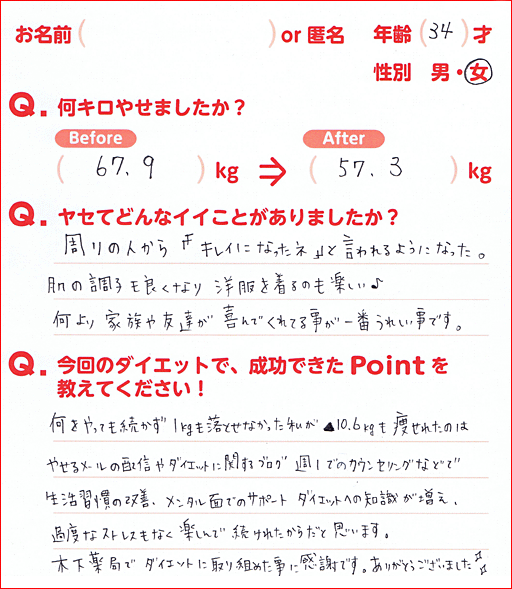 お名前( )or 匿名 年齢(34)才
性別 男・女
Q. 何キロやせましたか？
Before After
( 67.9 )kg ⇒ ( 57.3 )kg
Q. ヤセてどんなイイことがありましたか？
周りの人から『キレイになったネ』と言われるようになった。
肌の調子も良くなり 洋服を着るのも楽しい♪
何より 家族や友達が 喜んでくれてる事が一番うれしい事です。
Q. 今回のダイエットで、成功できたPointを
教えてください！
何をやっても続かず 1kgも落とせなかった私が ▲10.6kgも痩せれたのは
やせるメールの配信やダイエットに関するブログ 週1でのカウンセリングなどで
生活習慣の改善、メンタル面でのサポート ダイエットへの知識が増え、
過度なストレスもなく 楽しんで 続けれたからだと思います。
木下薬局で ダイエットに取り組めた事に感謝です。ありがとうございました